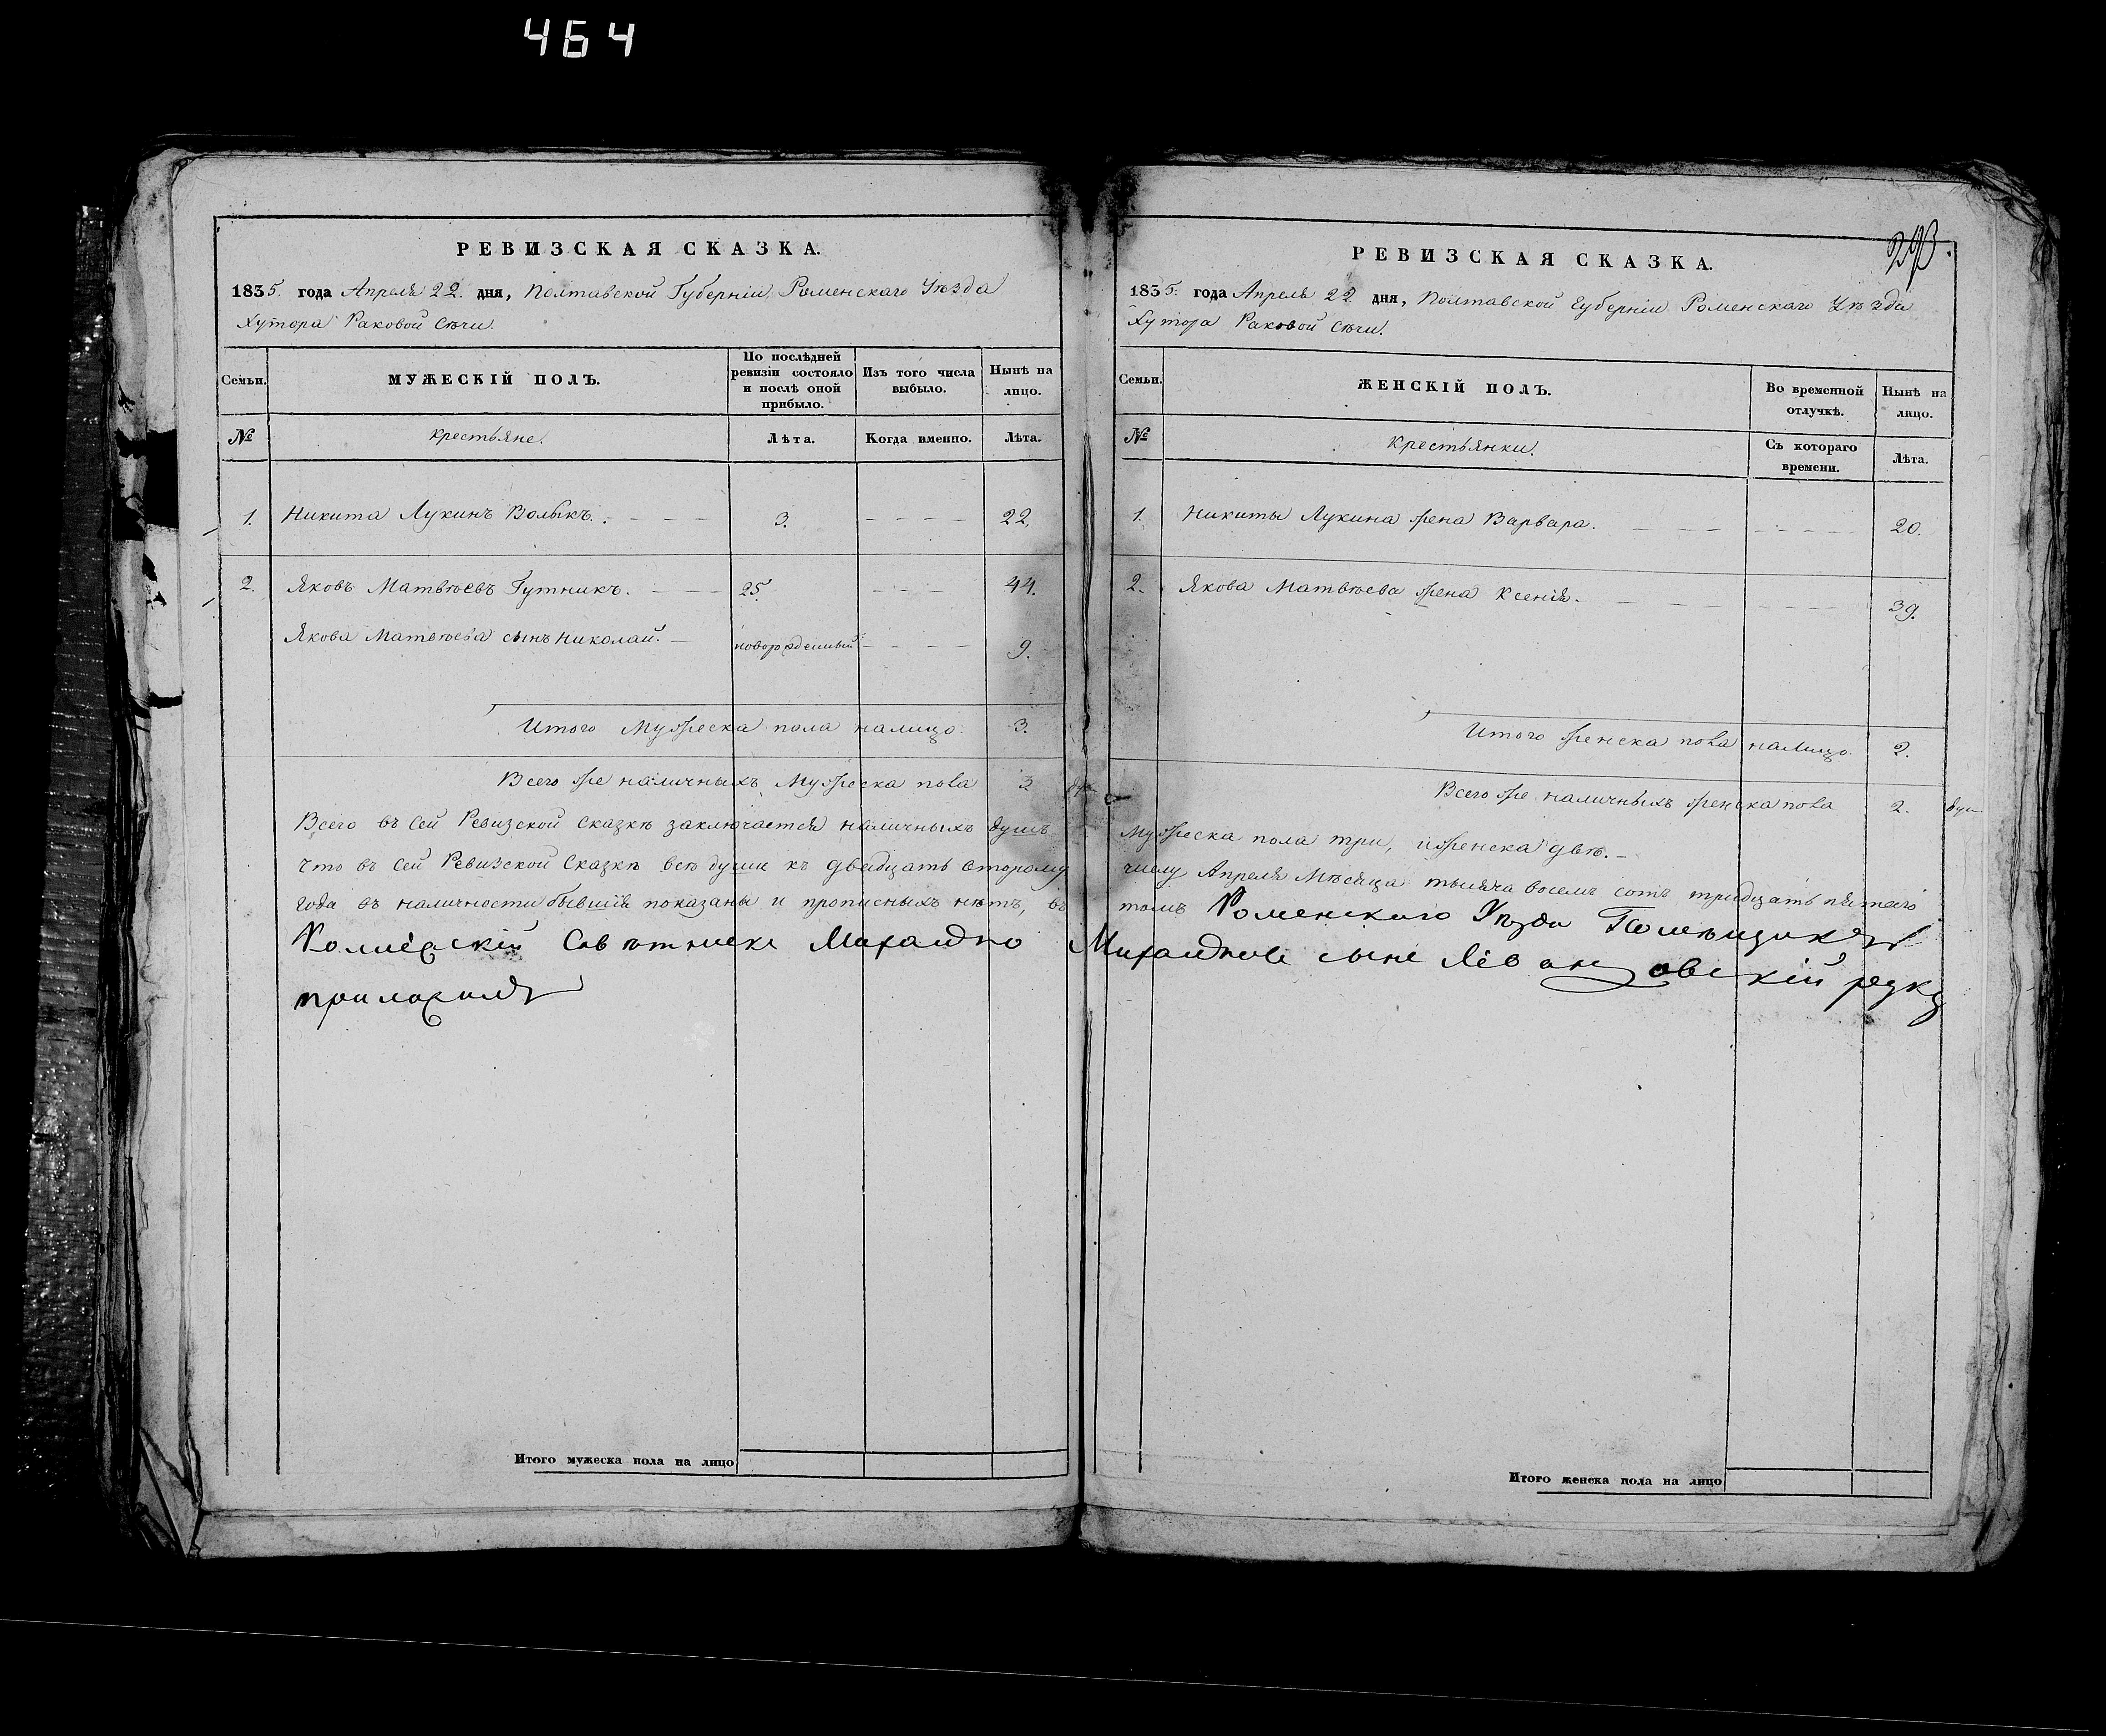 464
РЕВИЗСКАЯ СКАЗКА.
1835. года Апреля 22. дня, Полтавской Губерніи, Роменскаго Уѣзда
Хутора Раковой Сѣчи.
Семьи.
МУЖЕСКІЙ ПОЛЪ.
По послѣдней ревизіи состояло и послѣ оной прибыло.
Изъ того числа выбыло.
Нынѣ на лицо.
№
Крестьяне.
Лѣта.
Когда именно.
Лѣта.
1. Никита Лукинъ Волыкъ. 3. 22.
2. Яковъ Матвѣевъ Гутникъ. 25 44.
Якова Матвѣева сынъ Николай. новорожденный 9.
Итого Мужеска пола налицо. 3.
Всего же наличныхъ Мужеска пола 3 душ
Всего въ сей Ревизской Сказкѣ заключается наличныхъ душъ
Что въ сей Ревизской Сказкѣ всѣ души къ двадцать второму
года въ наличности бывшія показаны и прописныхъ нѣтъ, въ
Советникъ
приложилъ
Итого мужеска пола на лицо
293.
РЕВИЗСКАЯ СКАЗКА.
1835. года Апреля 22. дня, Полтавской Губерніи Роменскаго Уѣзда
Хутора Раковой Сѣчи.
Семьи.
ЖЕНСКІЙ ПОЛЪ.
Во временной отлучкѣ.
Нынѣ на лицо.
№
Крестьянки.
Съ котораго времени.
Лѣта.
1. Никиты Лукина жена Варвара. 20.
2. Якова Матвѣева жена Ксенія. 39.
Итого женска пола налицо. 2.
Всего же наличныхъ женска пола 2. душ
Мужеска пола три, и женска двѣ.
числу Апреля Мѣсяца тысяча восемъ сотъ тридцать пятаго
томъ Роменского Уезда Помещикъ
сынъ руку
Итого женска пола на лицо